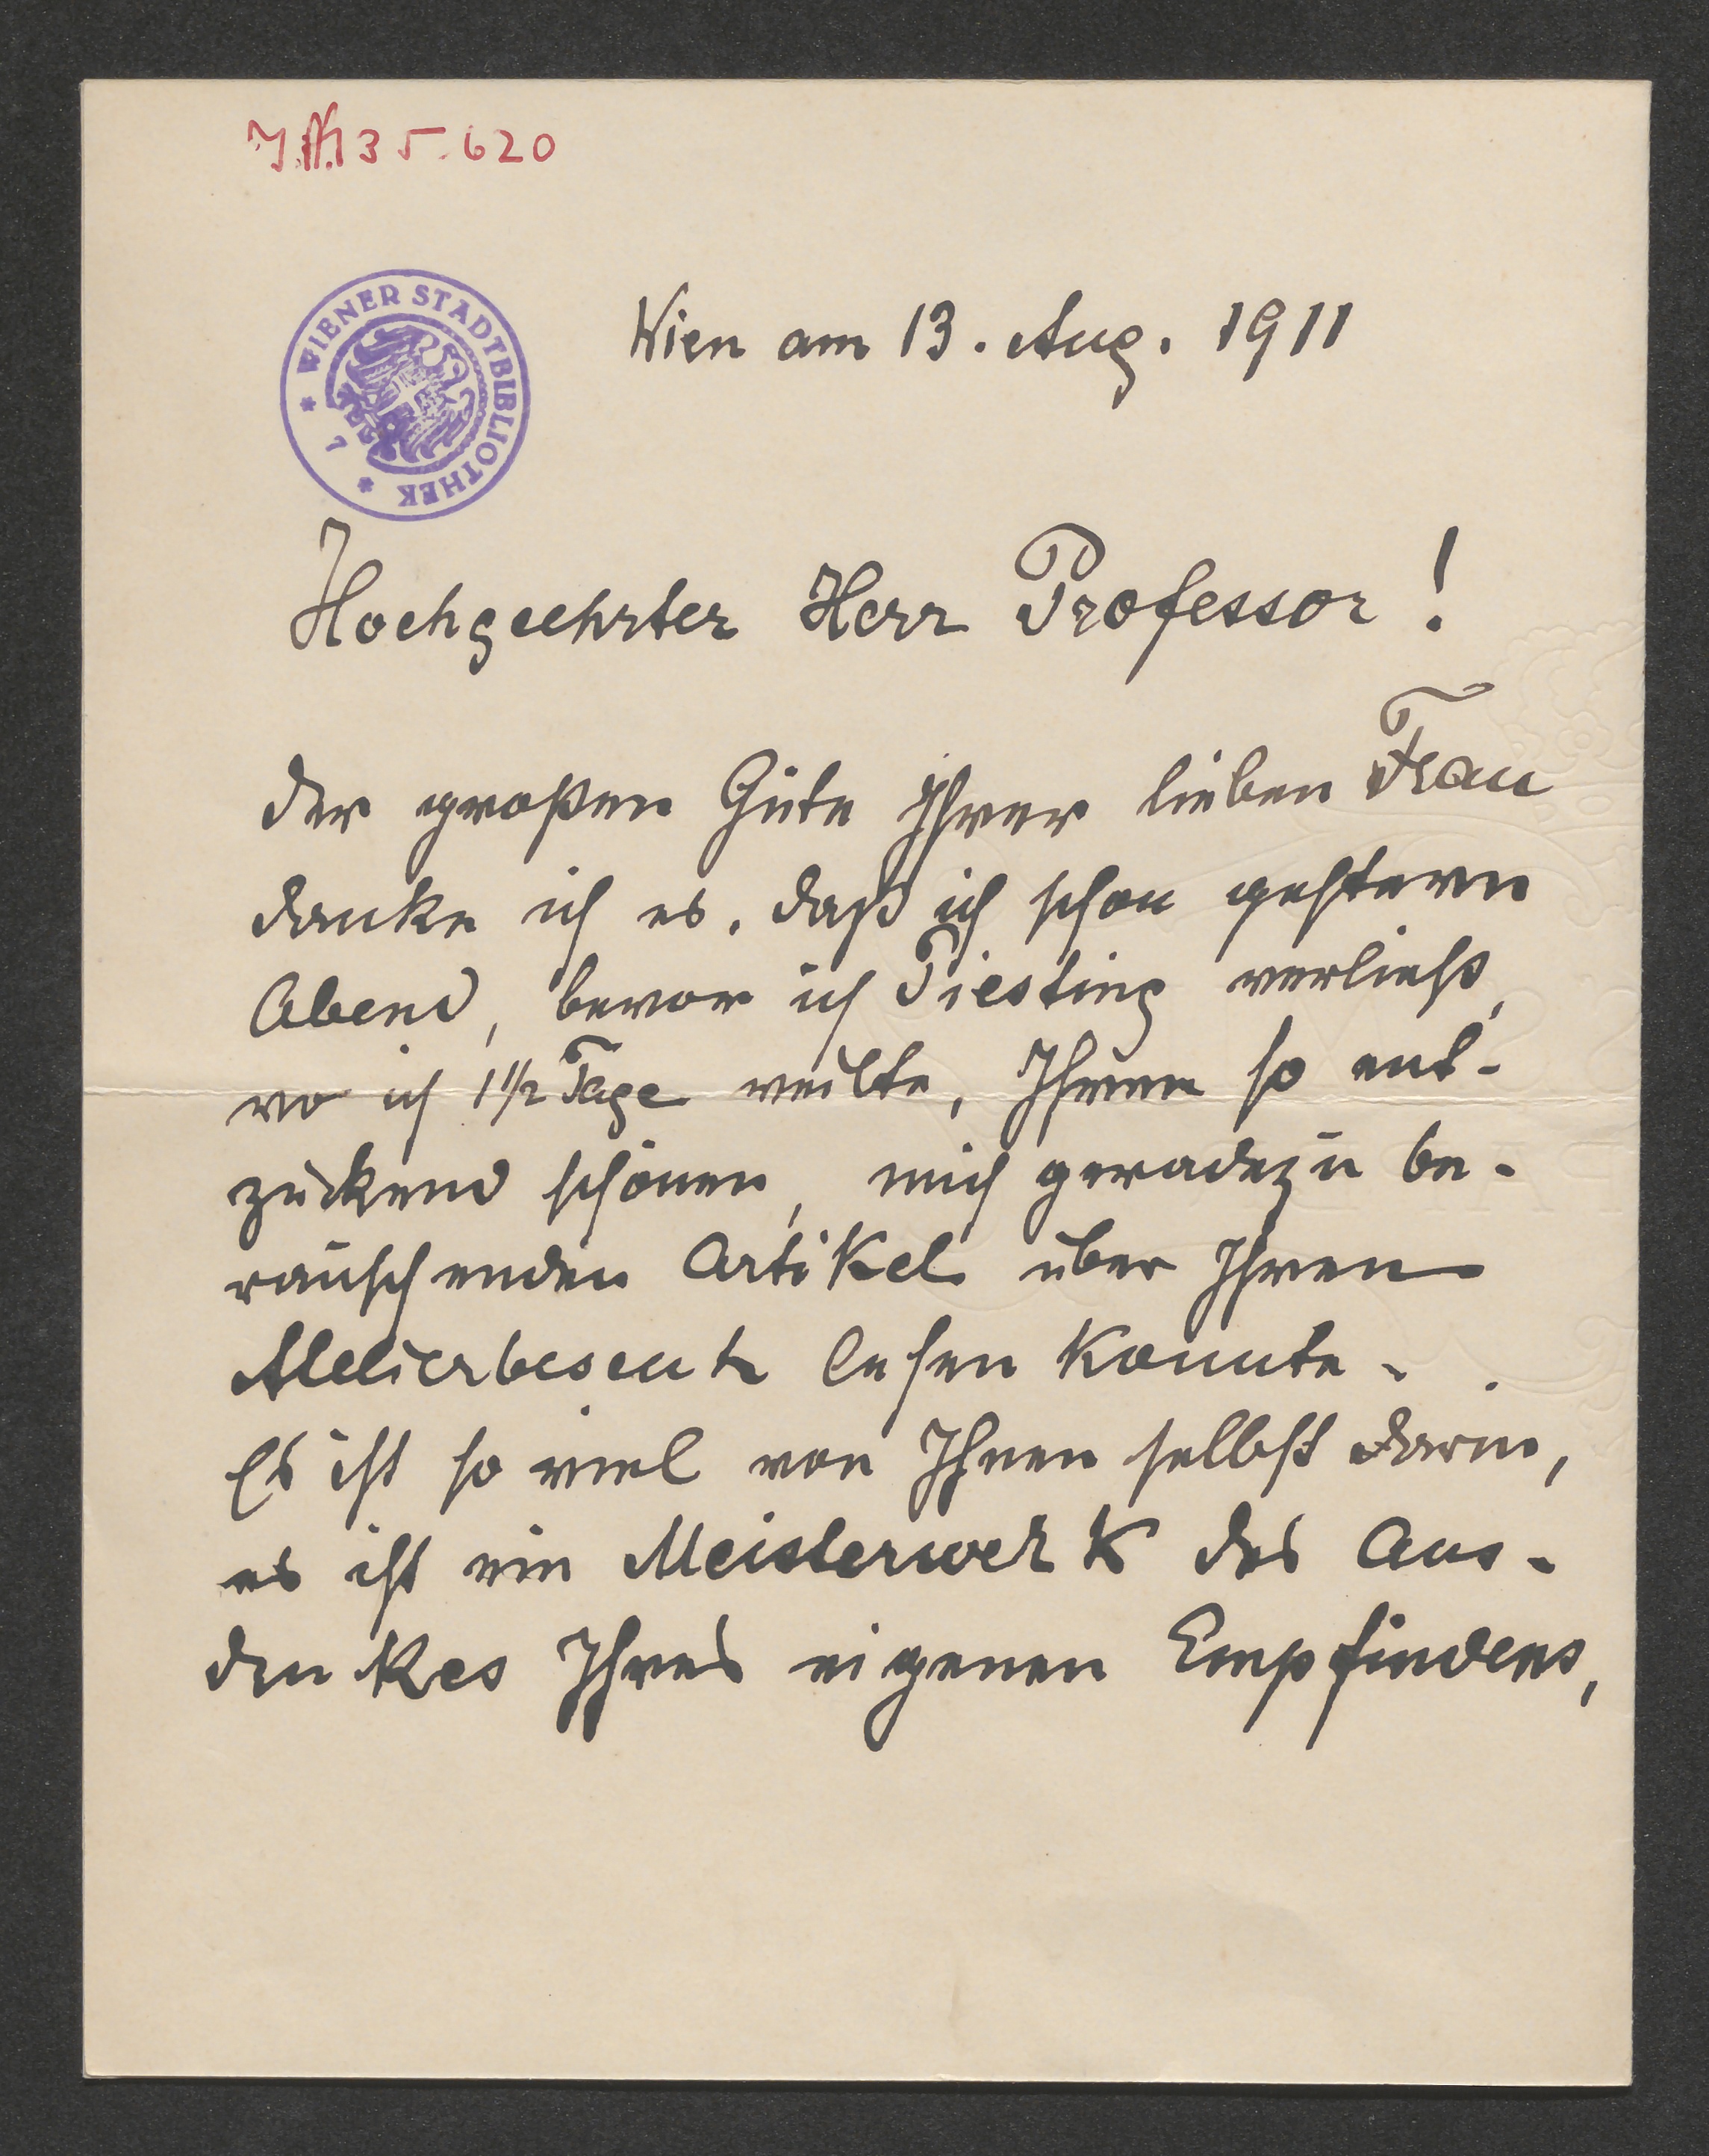 J.N. 135.620
WIENER STADTBIBLIOTHEK
Wien am 13. Aug. 1911
Hochgeehrter Herr Professor!
Der großen Güte Ihrer lieben Frau
danke ich es, daß ich schon gestern
Abend, bevor ich Piesting verließ,
wo ich 1 1/2 Tage weilte, Ihren so ent-
zückend schönen, mich geradezu be-
rauschenden Artikel über Ihren
Atelierbesuch lesen konnte.
Es ist so viel von Ihnen selbst darin,
es ist ein Meisterwerk des Aus-
druckes Ihres eigenen Empfindens,